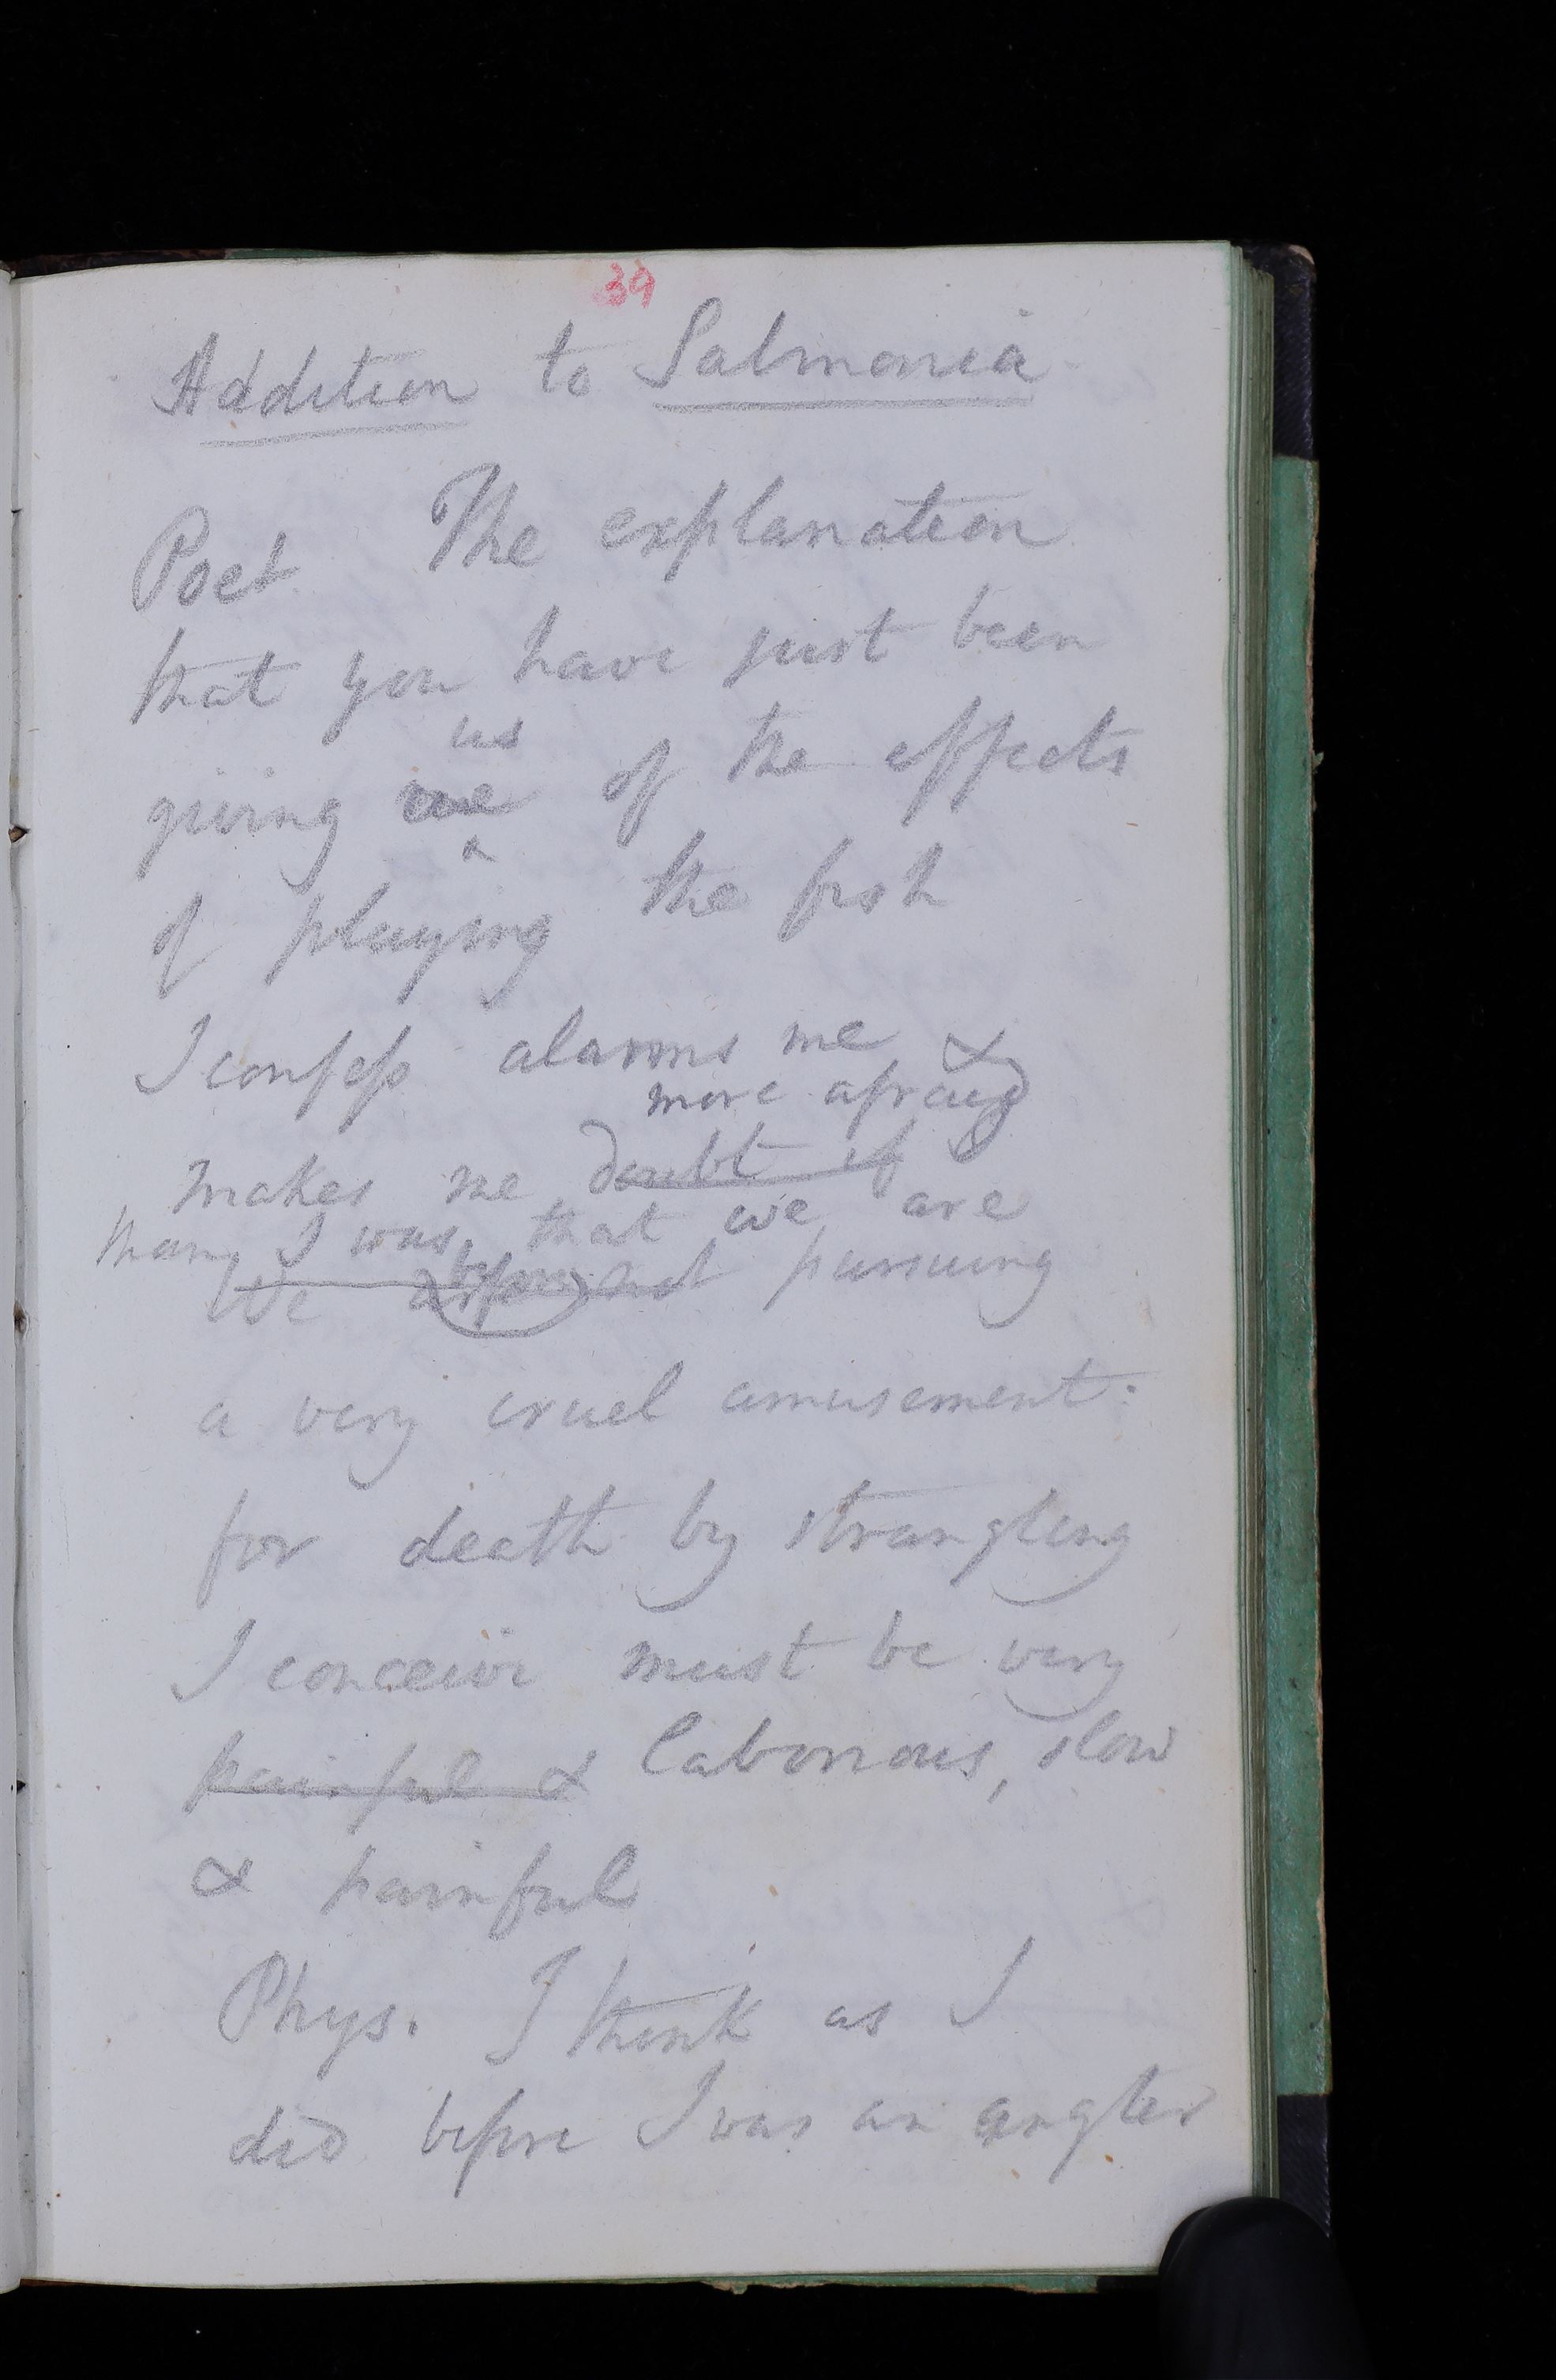 39
Addition to Salmonia
Poet. The explanation
that you have just been
us
giving me of the effects
of playing the fish
I confess alarms me &
more afraid
makes me doubt if
than I was that we are
before
we are not pursuing
a very cruel amusement.
for death by strangling
I conceive must be very
painful & laborious, slow
& painful
Phys. I think as I
did before I was an angler